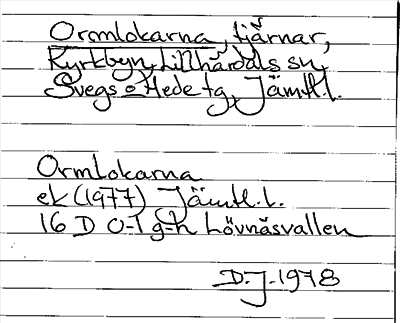 Ormlokarna, tjärnar,
Kyrkbyn, Lillhärdals sn,
Svegs o Hede tg, Jämtl. l.
Ormlokarna
ek (1977) Jämtl. l.
16 D 0-1 g-h Lövnäsvallen
D. J. 1978